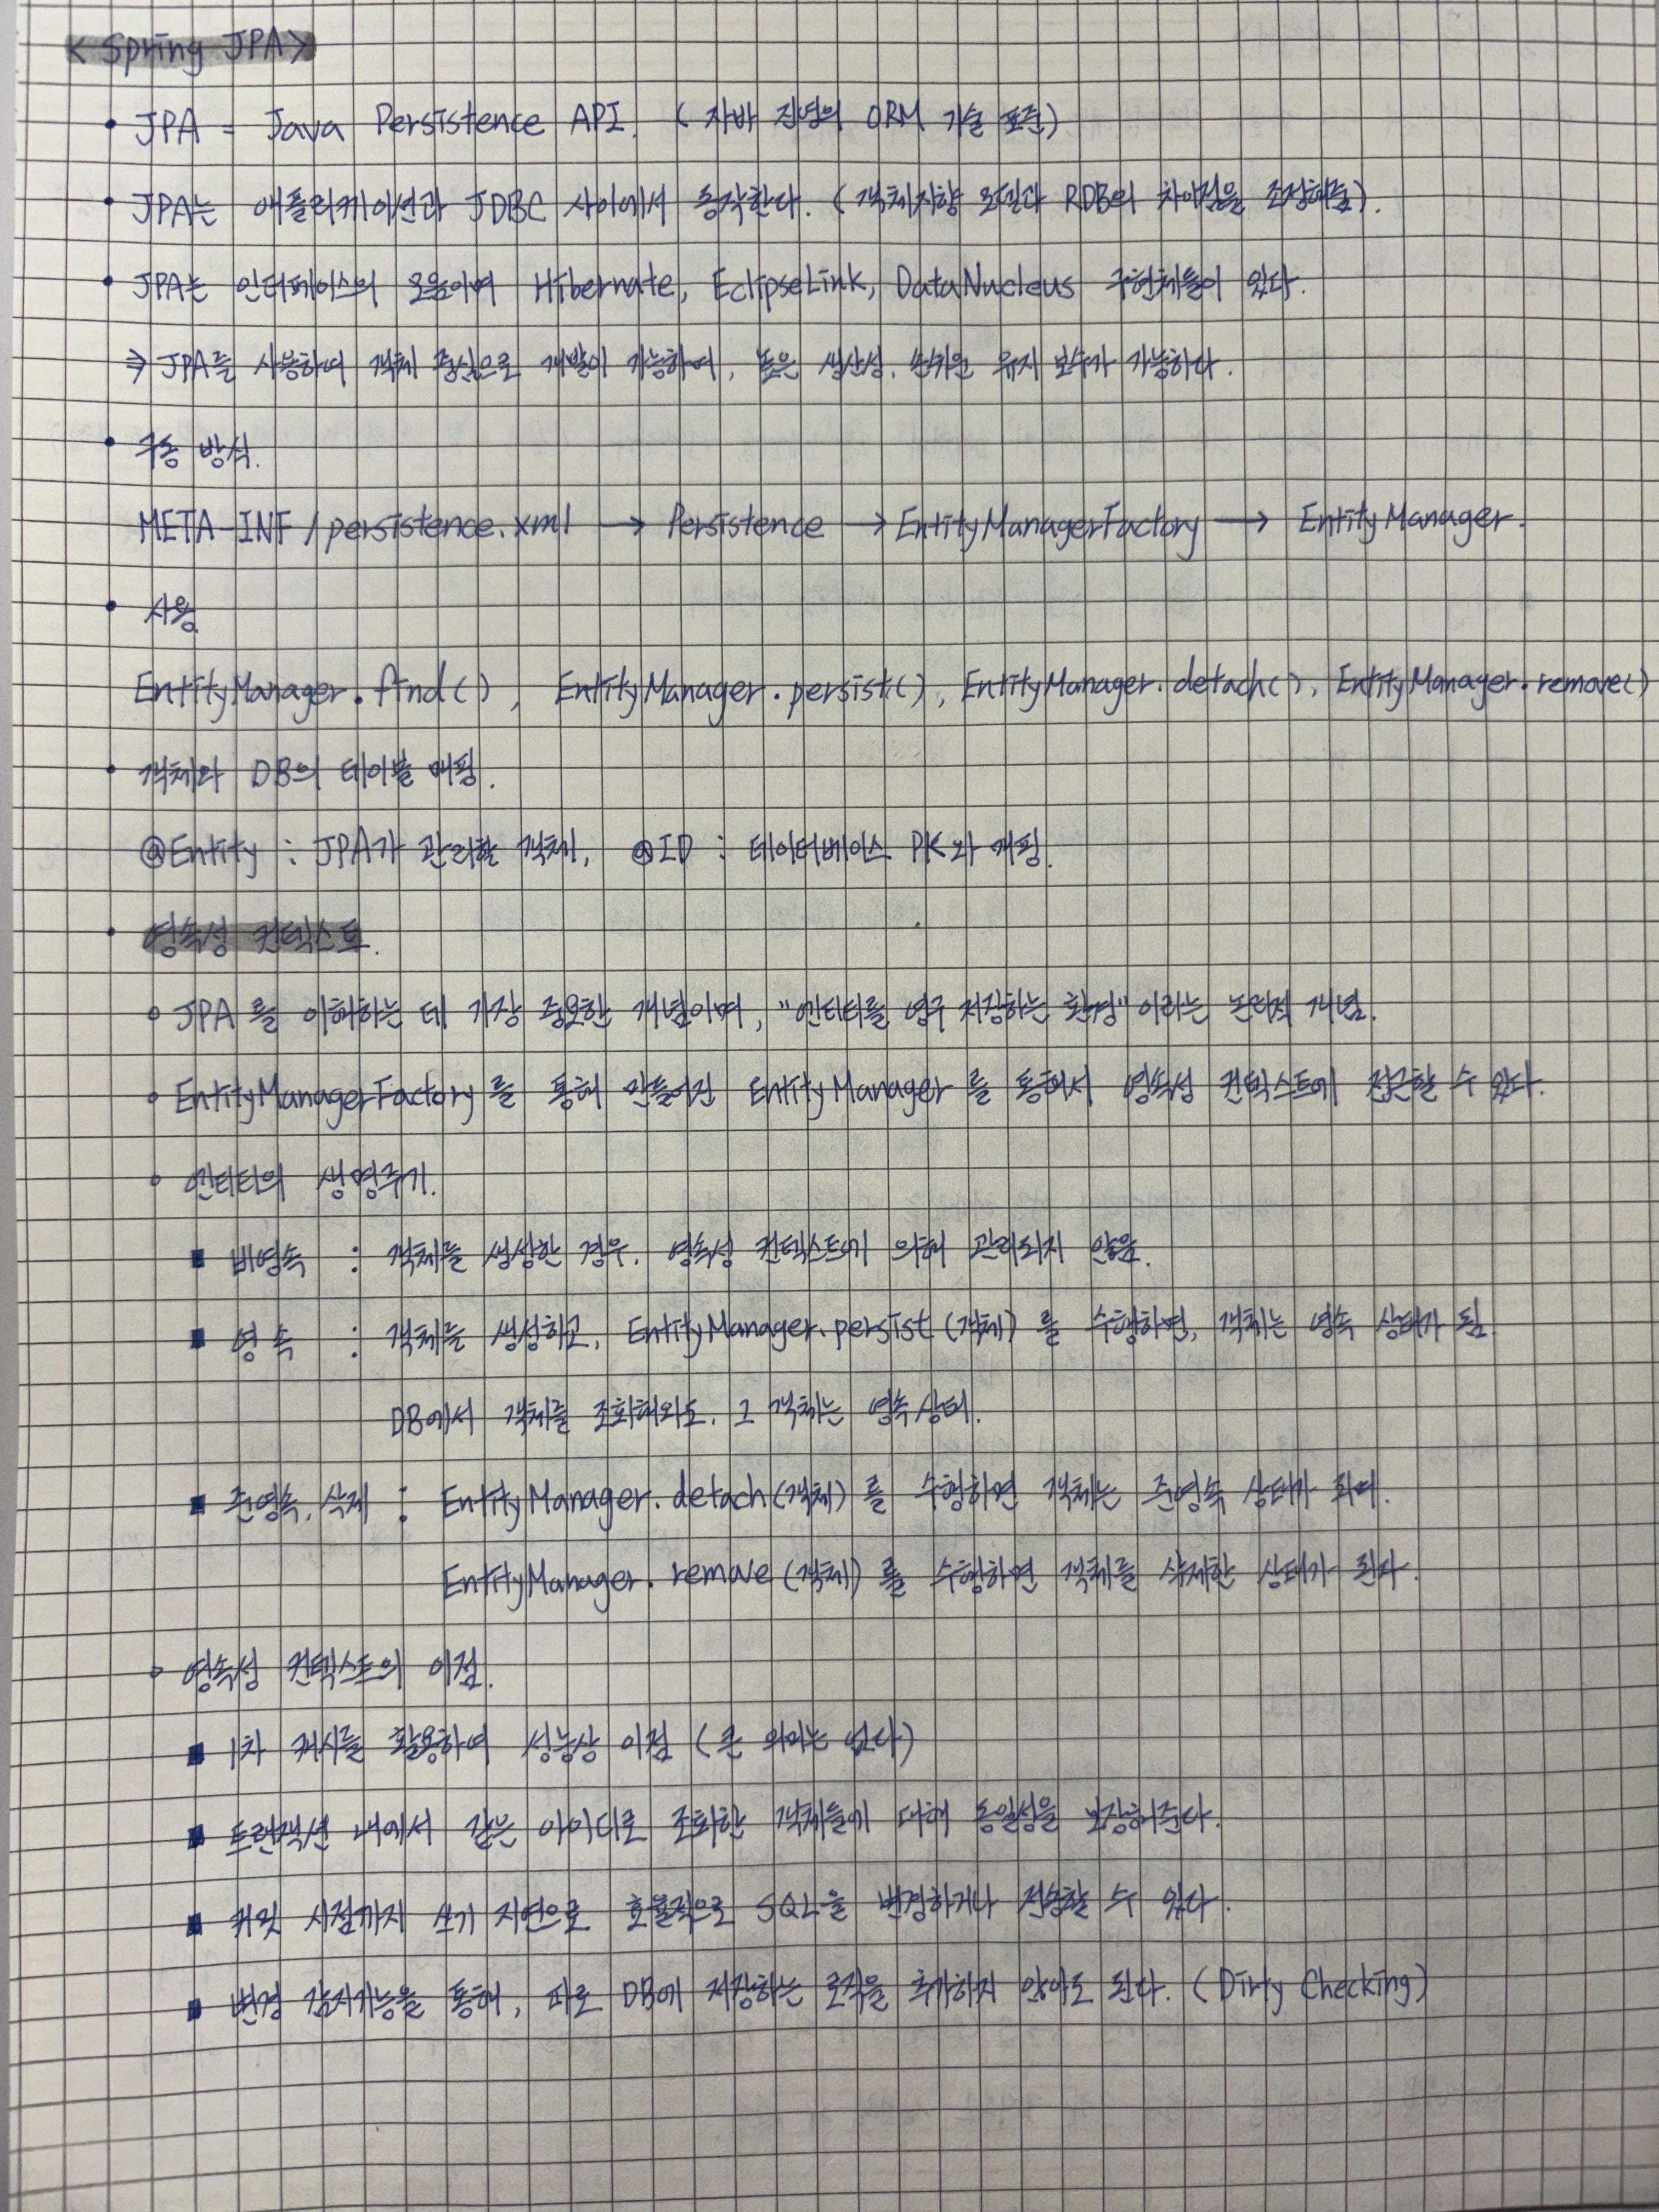 < Spring JPA >
• JPA = Java Persistence API. ( 자바 진영의 ORM 기술 표준)
• JPA는 애플리케이션과 JDBC 사이에서 동작한다. ( 객체지향 모델과 RDB의 차이점을 조정해줌).
• JPA는 인터페이스의 모음이며 Hibernate, EclipseLink, DataNucleus 구현체들이 있다.
⇒ JPA를 사용하여 객체 중심으로 개발이 가능하며, 높은 생산성, 손쉬운 유지 보수가 가능하다.
• 구동 방식.
META-INF / persistence.xml → Persistence → EntityManagerFactory → EntityManager.
• 사용
EntityManager.find() , EntityManager.persist(), EntityManager.detach(), EntityManager.remove()
• 객체와 DB의 테이블 매핑.
@Entity : JPA가 관리할 객체, @ID : 데이터베이스 PK와 매핑.
• 영속성 컨텍스트.
∘ JPA 를 이해하는 데 가장 중요한 개념이며, "엔티티를 영구 저장하는 환경" 이라는 논리적 개념.
∘ EntityManagerFactory 를 통해 만들어진 EntityManager 를 통해서 영속성 컨텍스트에 접근할 수 있다.
∘ 엔티티의 생명주기.
▪ 비영속 : 객체를 생성한 경우. 영속성 컨텍스트에 의해 관리되지 않음.
▪ 영속 : 객체를 생성하고, EntityManager.persist (객체) 를 수행하면, 객체는 영속 상태가 됨.
DB에서 객체를 조회해와도, 그 객체는 영속상태.
▪ 준영속, 삭제 : EntityManager.detach(객체) 를 수행하면 객체는 준영속 상태가 되며.
EntityManager.remove (객체) 를 수행하면 객체를 삭제한 상태가 된다.
∘ 영속성 컨텍스트의 이점.
▪ 1차 캐시를 활용하여 성능상 이점 ( 큰 의미는 없다)
▪ 트랜잭션 내에서 같은 아이디로 조회한 객체들에 대해 동일성을 보장해준다.
▪ 커밋 시점까지 쓰기 지연으로 효율적으로 SQL을 변경하거나 전송할 수 있다.
▪ 변경 감지기능을 통해, 따로 DB에 저장하는 로직을 추가하지 않아도 된다. ( Dirty Checking)